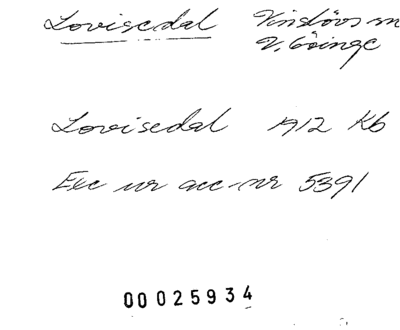 Lovisedal Vinslövs sn
V. Göinge
Lovisedal 1912 Kb
Exc ur acc-nr 5391
00025934